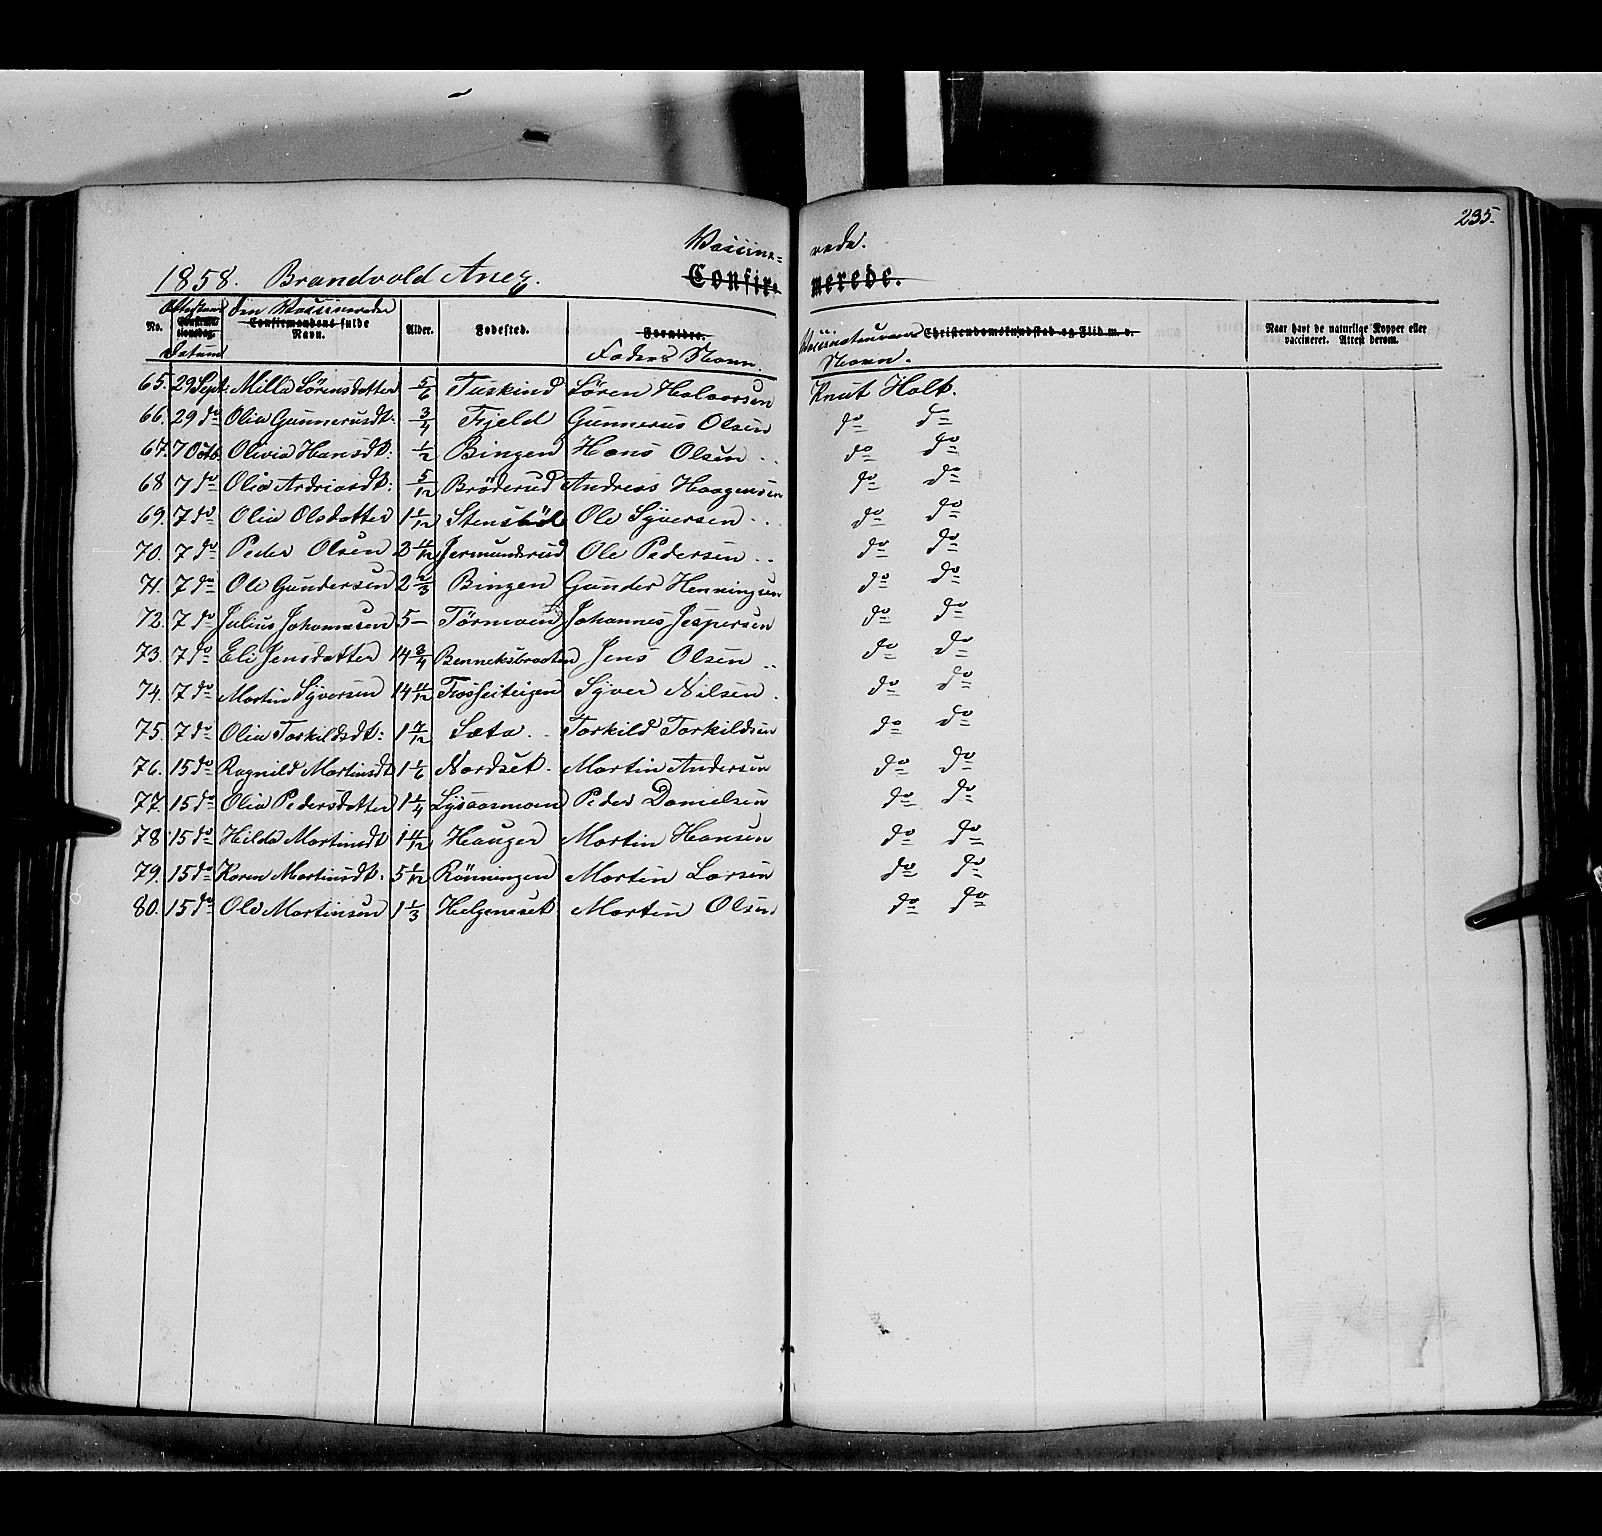 235.
Vaccine= rede.
1858. Brandvold Anex. Confir= merede.
No. Attestens Confirmationsdag. Datum den Vaccineredes Confirmandens fulde Navn. Alder. Fødested. Forældre. Faders Navn. Vaccinateurens Navn. Christendomskundskab og Flid m. v. Naar havt de naturlige Kopper eller vaccineret. Attest derom.
65. 29 Sept. Milla Sörensdatter 5/6 Tuskind Sören Halvorsen Knut Holt.
66. 29 do Olia Gunnerusdt: 3/4 Fjeld Gunnerus Olsen do do
67. 7 Octb. Olivia Hansdt: 1/2 Bingen Hans Olsen .. do do
68 7 do Olia Andriasdt: 5/12 Bröderud Andreas Haagensen do do
69. 7 do Olia Olsdatter 1 1/12 Ole Syversen .. do do
70. 7 do Peder Olsen 2 11/12 Jermunderud Ole Pedersen .. do do
71. 7 do Ole Gundersen 2 2/3 Bingen Gunder Henningsen do do
72. 7 do Julius Johannesen 5 — Törmoen Johannes Jespersen do do
73. 7 do Eli Jensdatter 14 3/4 Benneksbraaten Jens Olsen .. do do
74. 7 do Martin Syversen 14 11/12 Syver Nilsen . do do
75. 7 do Olia Torkildsdt: 1 7/12 Sæta .. Torkild Torkildsen do do
76. 15 do Ragnild Martinsdt 1 1/6 Nordset. Martin Andersen do do
77. 15 do Olia Pedersdatter 1 1/4 Lysaasmoen Peder Danielsen do do
78 15 do Hilda Martinsdt 1 11/12 Hauger Martin Hansen do do
79. 15 do Karen Martinsdt. 5 1/12 Rönningen Martin Larsen do do
80. 15 do Ole Martinsen 1 1/3 Helgeneset Martin Olsen do do